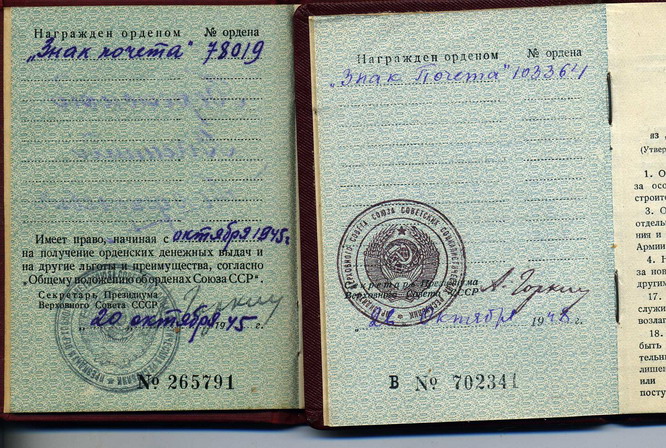 Награжден орденом № ордена
„Знак почета" 78019
Имеет право, начиная с октября 1945 г
на получение орденских денежных выдач и
на другие льготы и преимущества, согласно
„Общему положению об орденах Союза ССР".
Секретарь Президиума
Верховного Совета СССР Горкин
„20 октября 1945 г.
№ 265791
Награжден орденом № ордена
„Знак Почета" 103364
Секретарь Президиума
Верховного Совета СССР А. Горкин
октября 194 г.
В № 702341
яз
(Утвер
1. О
за осо
строите
3. О
отдель
ния и
Армии
4. Н
за нов
другим
17.
служи
возлаг
18.
быть
тельны
лишен
или
посту